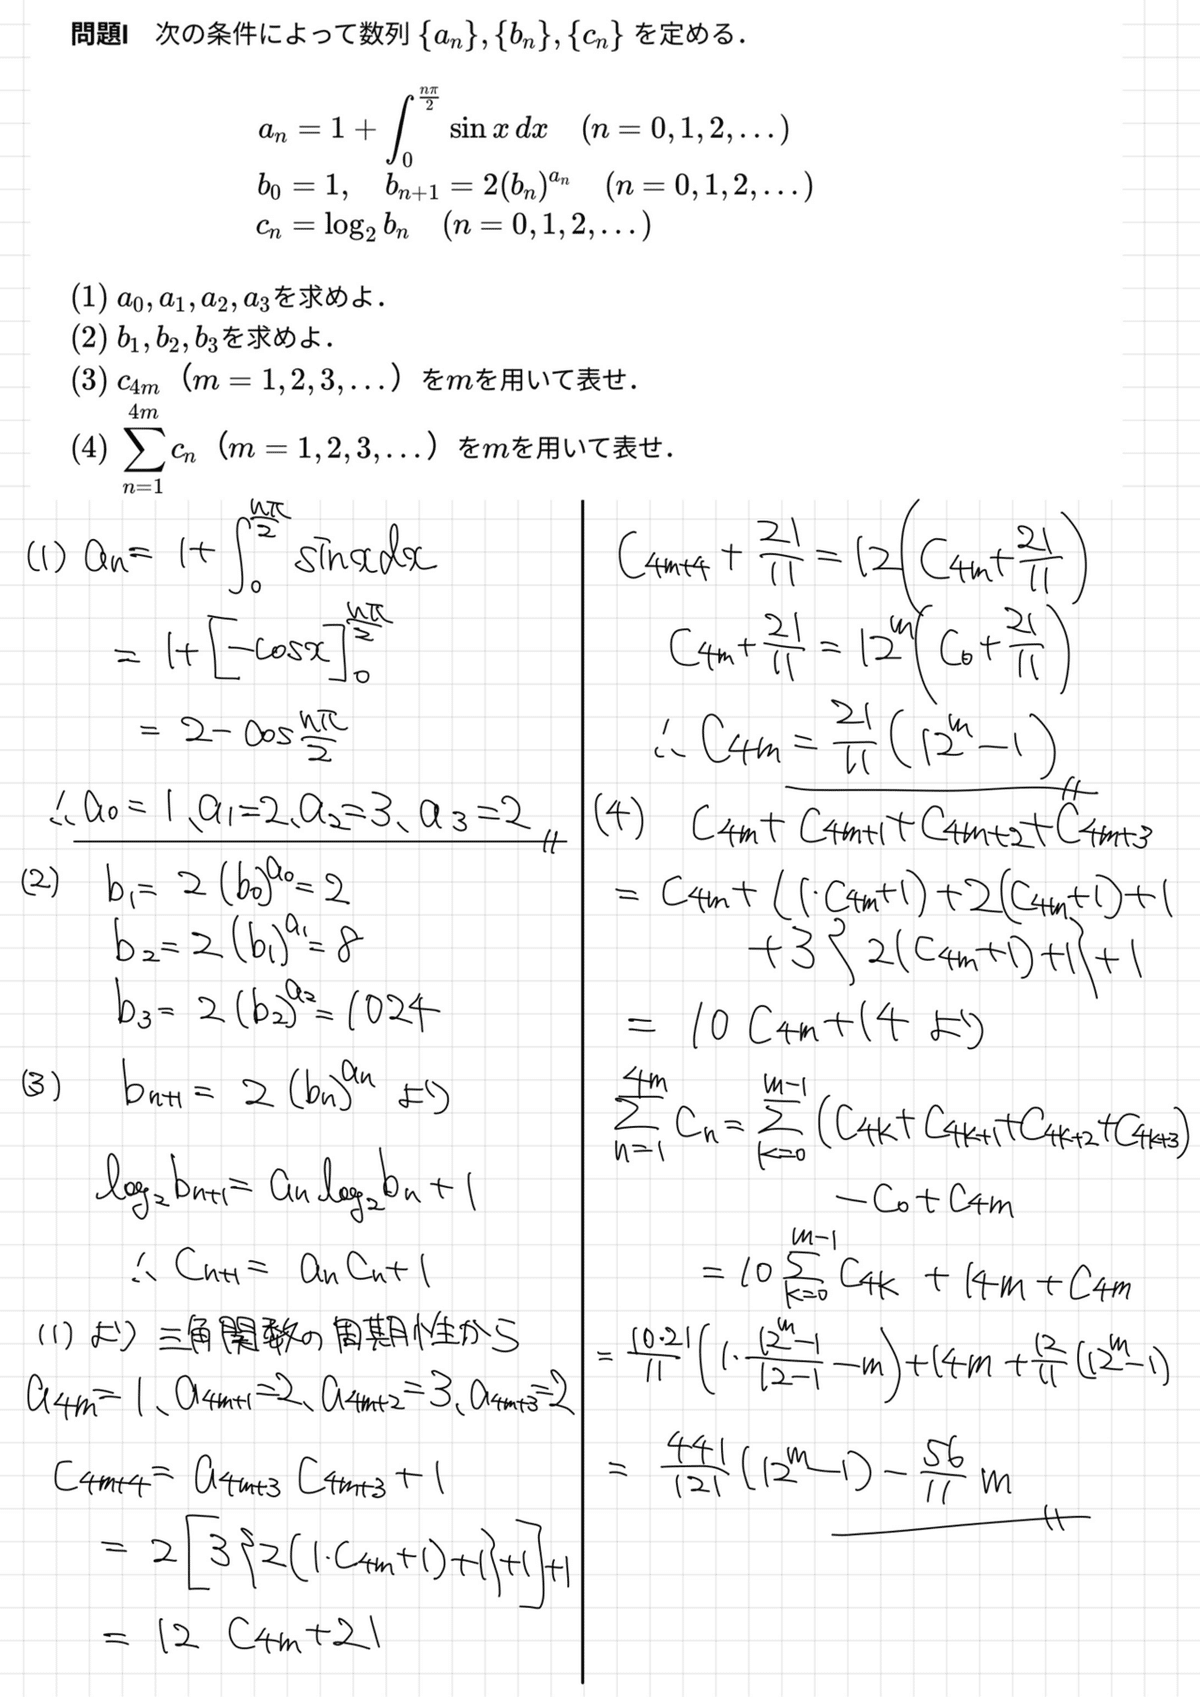 問題I 次の条件によって数列 {aₙ}, {bₙ}, {cₙ} を定める.
aₙ = 1 + ∫₀^{nπ/2} sin x dx (n = 0, 1, 2, ...)
b₀ = 1, bₙ₊₁ = 2(bₙ)^{aₙ} (n = 0, 1, 2, ...)
cₙ = log₂ bₙ (n = 0, 1, 2, ...)
(1) a₀, a₁, a₂, a₃を求めよ.
(2) b₁, b₂, b₃を求めよ.
(3) c₄ₘ (m = 1, 2, 3, ...) をmを用いて表せ.
(4) ∑_{n=1}^{4m} cₙ (m = 1, 2, 3, ...) をmを用いて表せ.
(1) aₙ = 1 + ∫₀^{nπ/2} sinx dx
= 1 + [-cosx]₀^{nπ/2}
= 2 - cos nπ/2
∴ a₀ = 1、a₁ = 2、a₂ = 3、a₃ = 2
(2) b₁ = 2(b₀)^{a₀} = 2
b₂ = 2(b₁)^{a₁} = 8
b₃ = 2(b₂)^{a₂} = 1024
(3) bₙ₊₁ = 2(bₙ)^{aₙ} より
log₂bₙ₊₁ = aₙ log₂bₙ + 1
∴ Cₙ₊₁ = aₙCₙ + 1
(1) より 三角関数の周期性から
a₄ₘ = 1、a₄ₘ₊₁ = 2、a₄ₘ₊₂ = 3、a₄ₘ₊₃ = 2
C₄ₘ₊₄ = a₄ₘ₊₃ C₄ₘ₊₃ + 1
= 2[3{2(1·C₄ₘ+1)+1}+1]+1
= 12 C₄ₘ + 21
C₄ₘ₊₄ + 21/11 = 12(C₄ₘ + 21/11)
C₄ₘ + 21/11 = 12^m(C₀ + 21/11)
∴ C₄ₘ = 21/11 (12^m - 1)
(4) C₄ₘ + C₄ₘ₊₁ + C₄ₘ₊₂ + C₄ₘ₊₃
= C₄ₘ + (1·C₄ₘ+1) + 2(C₄ₘ+1)+1
+3{2(C₄ₘ+1)+1}+1
= 10 C₄ₘ + 14 より
∑_{n=1}^{4m} Cₙ = ∑_{k=0}^{m-1} (C₄ₖ + C₄ₖ₊₁ + C₄ₖ₊₂ + C₄ₖ₊₃)
- C₀ + C₄ₘ
= 10 ∑_{k=0}^{m-1} C₄ₖ + 14m + C₄ₘ
= 10·21/11 (1· (12^m-1)/(12-1) - m) + 14m + 12/11 (12^m-1)
= 441/121 (12^m-1) - 56/11 m